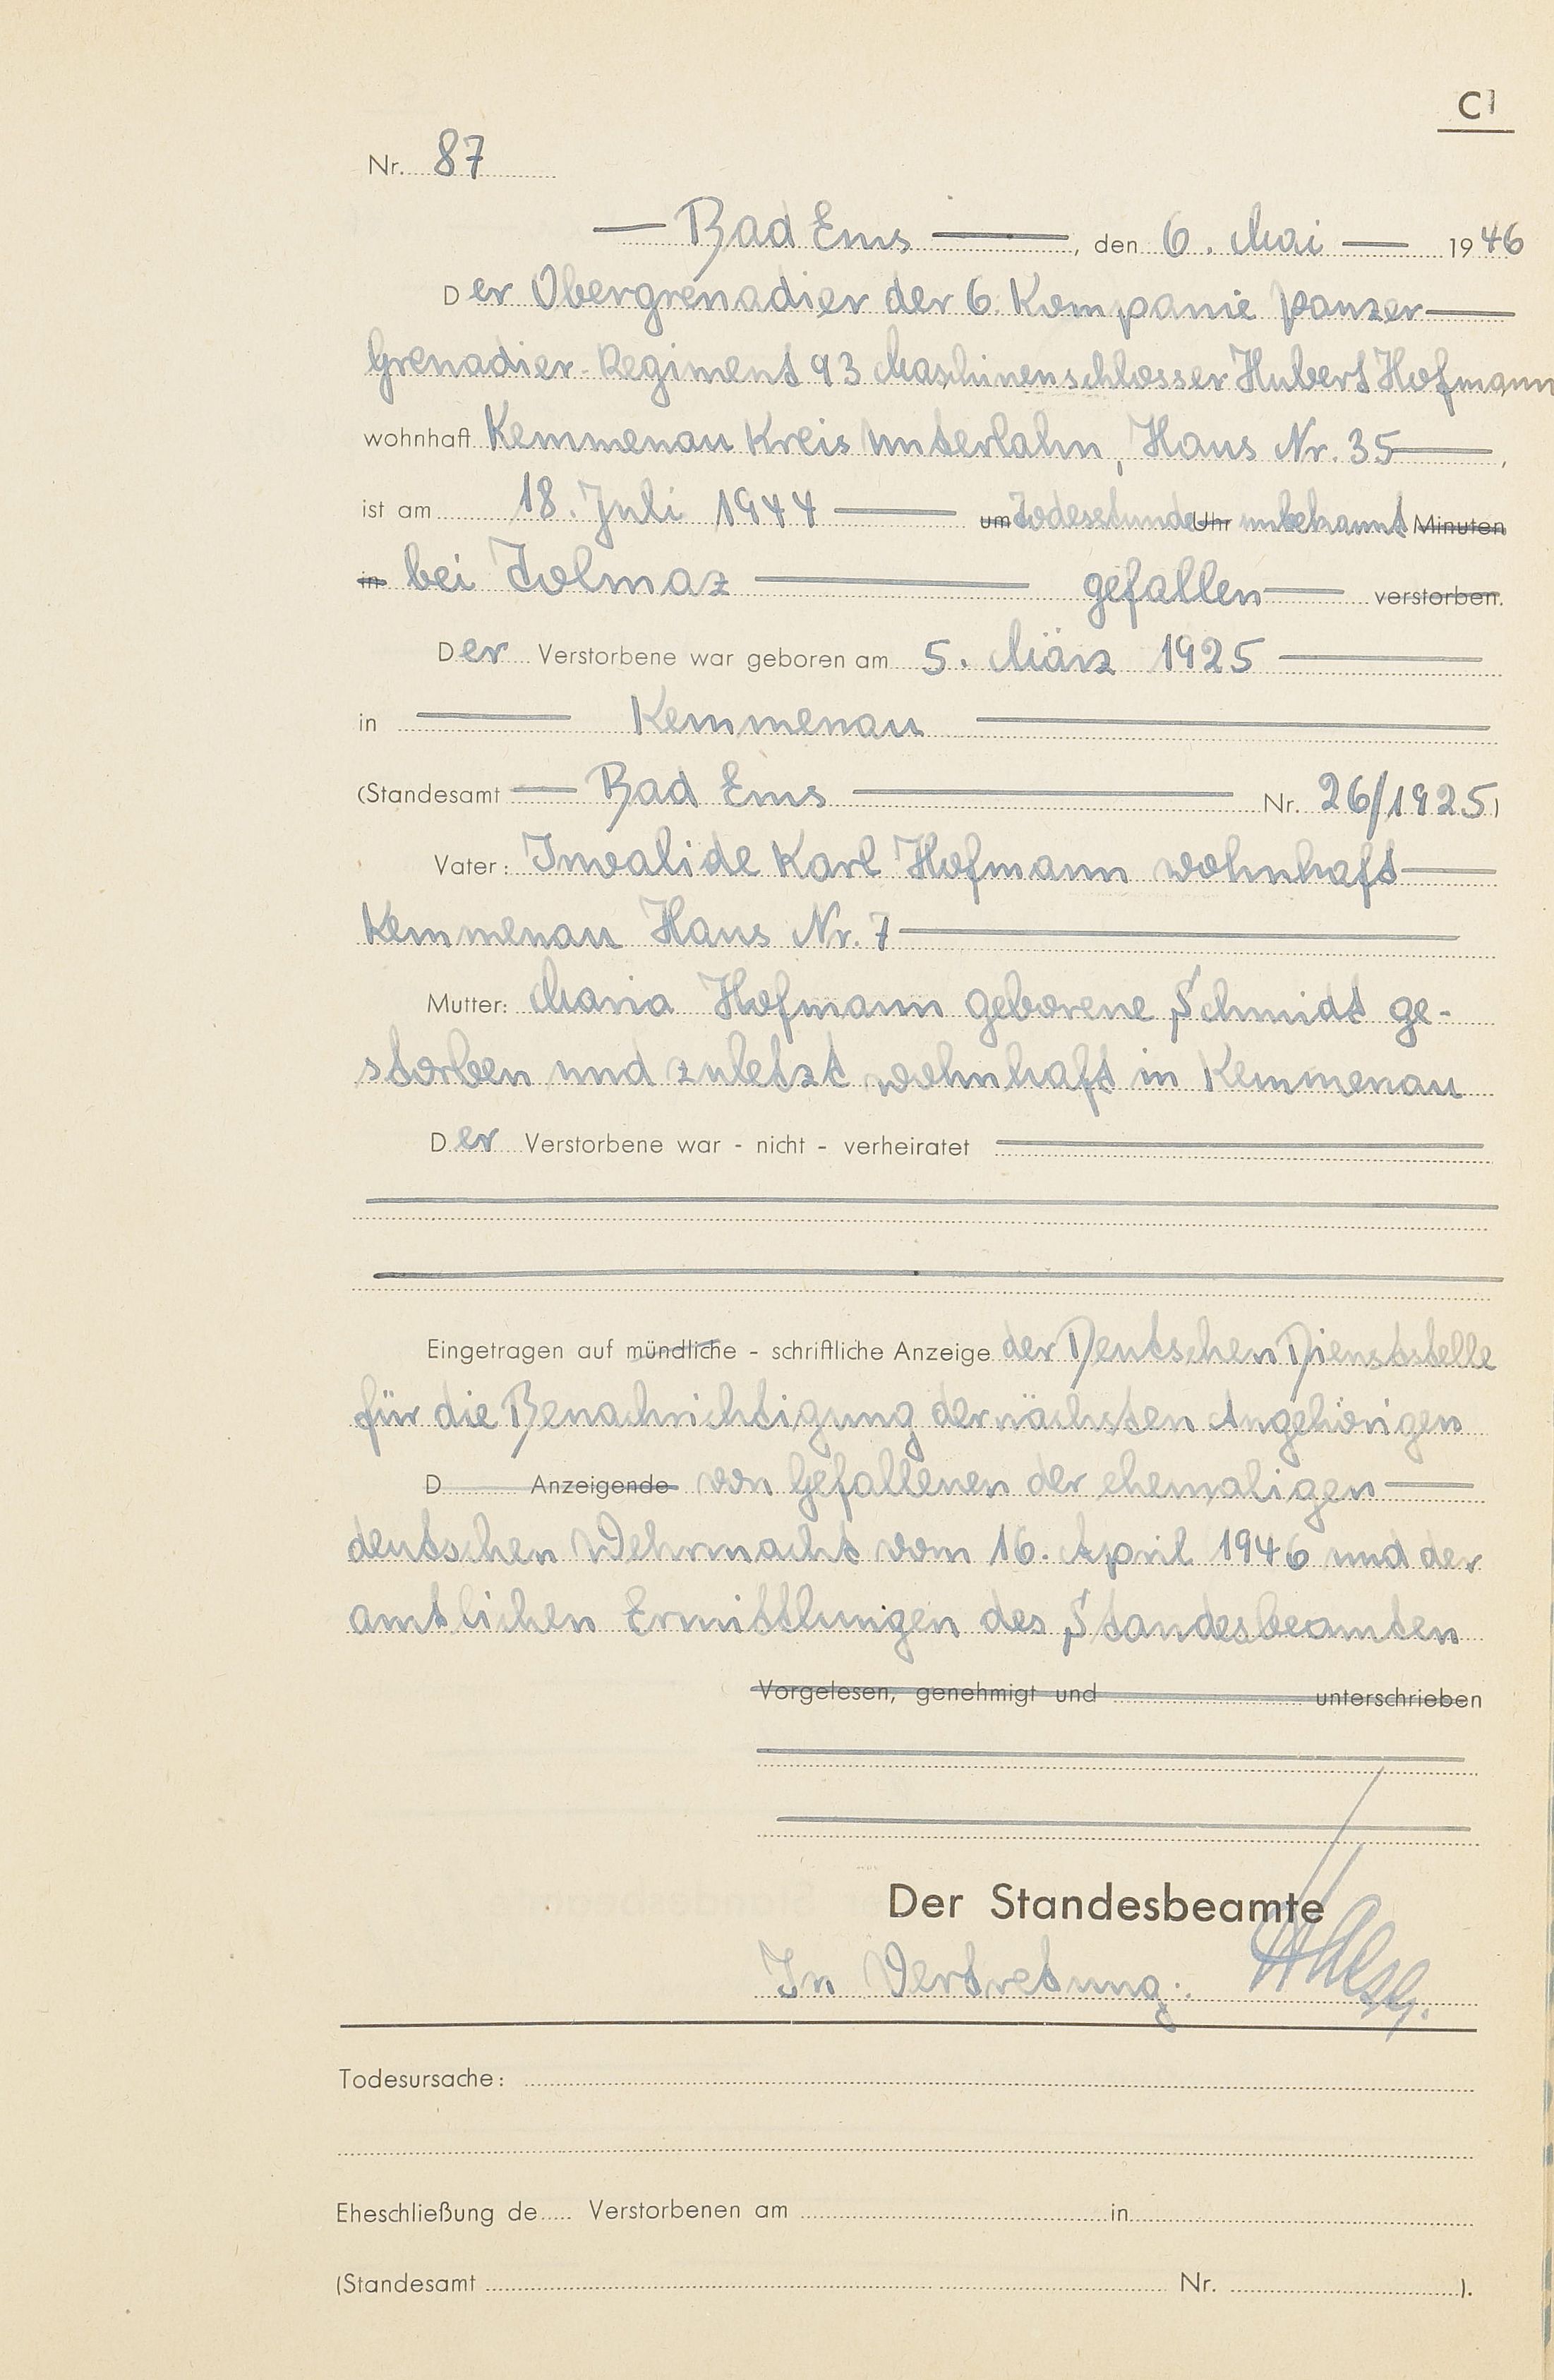 C1
Nr. 87
Bad Ems, den 6. Mai 1946
Der Obergrenadier der 6. Kompanie Panzer
Grenadier-Regiment 93 Maschinenschlosser Hubert Hofmann,
wohnhaft Kemmenau Kreis Unterlahn, Haus Nr. 35,
ist am 18. Juli 1944 um Todesstunde Uhr unbekannt Minuten
in bei Tolmaz gefallen verstorben.
Der Verstorbene war geboren am 5. März 1925
in Kemmenau
(Standesamt Bad Ems Nr. 26/1925)
Vater: Invalide Karl Hofmann wohnhaft
Kemmenau Haus Nr. 7
Mutter: Maria Hofmann geborene Schmidt ge-
storben und zuletzt wohnhaft in Kemmenau
Der Verstorbene war - nicht - verheiratet
Eingetragen auf mündliche - schriftliche Anzeige der Deutschen Dienststelle
für die Benachrichtigung der nächsten Angehörigen
D Anzeigende von Gefallenen der ehemaligen
deutschen Wehrmacht vom 16. April 1946 und der
amtlichen Ermittlungen des Standesbeamten
Vorgelesen, genehmigt und unterschrieben
Der Standesbeamte
In Vertretung:
Todesursache:
Eheschließung de Verstorbenen am in
(Standesamt Nr. ).